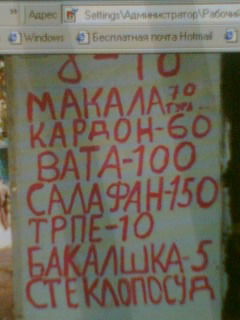 Адрес Settings\Администратор\Рабочий
Windows Бесплатная почта Hotmail
8-10
МАКАЛА 70
КАРДОН-60
ВАТА-100
САЛАФАН-150
ТРПЕ-10
БАКАЛШКА-5
СТЕКЛОПОСУД